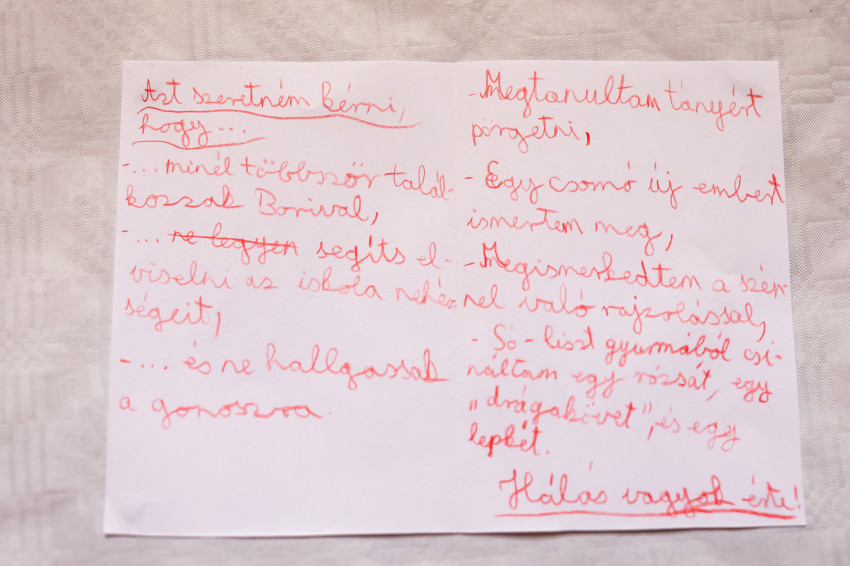 Azt szeretném kérni,
hogy...
-...minél többször talál-
kozzak Borival,
-... ne legyen segíts el-
viselni az iskola nehéz-
ségeit,
-... és ne hallgassak
a gonoszra.
-Megtanultam tányért
pörgetni,
- Egy csomó új embert
ismertem meg,
-Megismerkedtem a szén-
nel való rajzolással,
- Só-liszt gyurmából csi-
náltam egy rózsát, egy
„drágakövet”, és egy
lepkét.
Hálás vagyok érte!